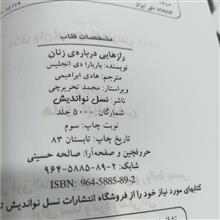 کتابخانه ملی ایران
مشخصات کتاب
رازهایی درباره‌ی زنان
نویسنده: باربارا دی انجلیس
مترجم: هادی ابراهیمی
ویراستار: محمد تحریرچی
ناشر: نسل نواندیش
شمارگان: ۵۰۰۰ جلد
نوبت چاپ: سوم
تاریخ چاپ: تابستان ۸۳
حروفچین و صفحه‌آرا: صالحه حسینی
شابک: ۲-۸۹-۵۸۸۵-۹۶۴
ISBN: 964-5885-89-2
کتابهای مورد نیاز خود را از فروشگاه انتشارات نسل نواندیش